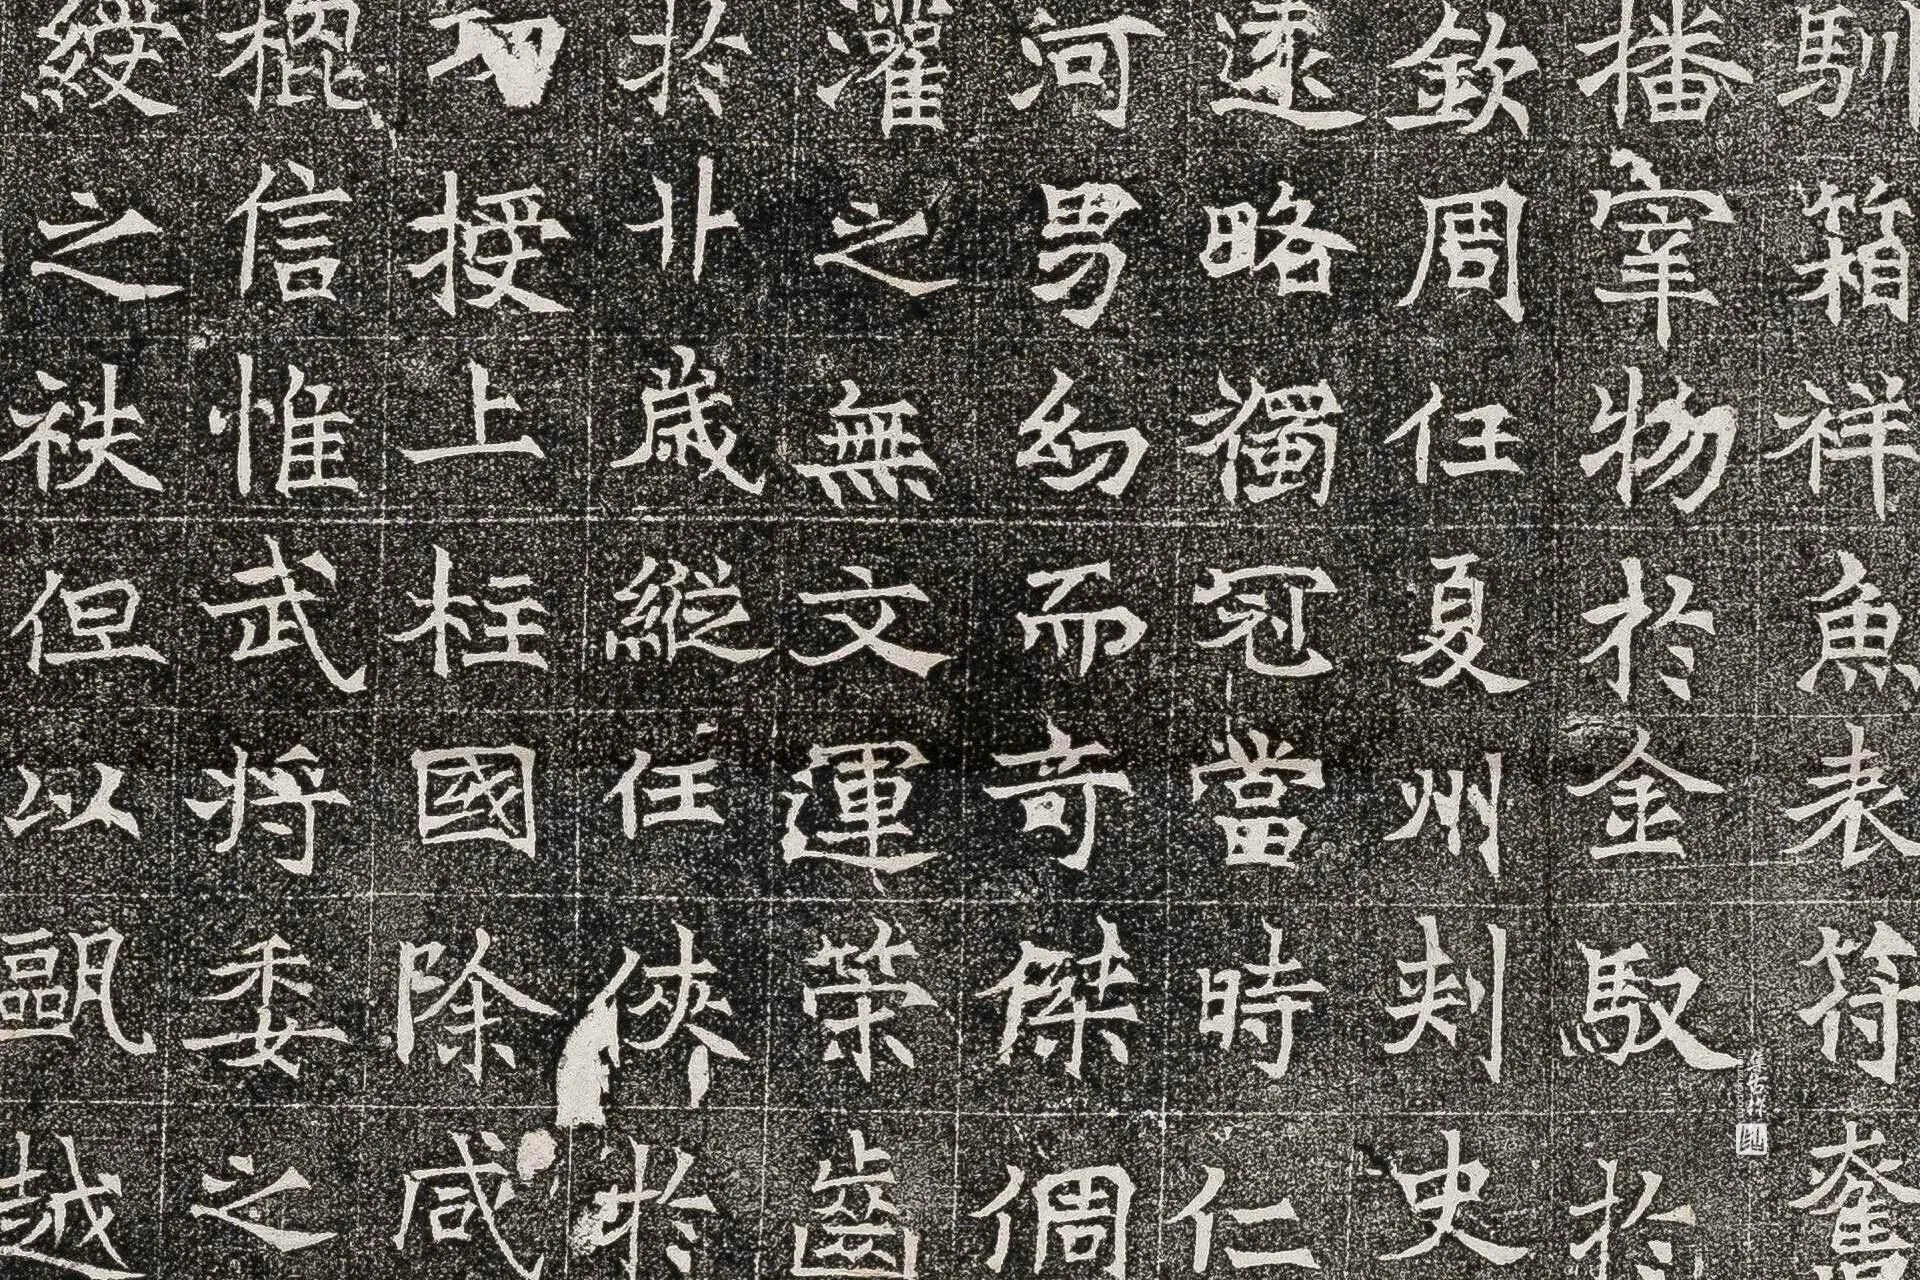 馴箱祥魚表符奮
播宰物於金馭於
欽周任夏州刺史
遠略獨冠當時仁
河男幼而奇傑倜
灌之無文運榮齒
於卝歲縱任俠於
功授上柱國除咸
棍信惟武將委之
綬之袟但以甌越